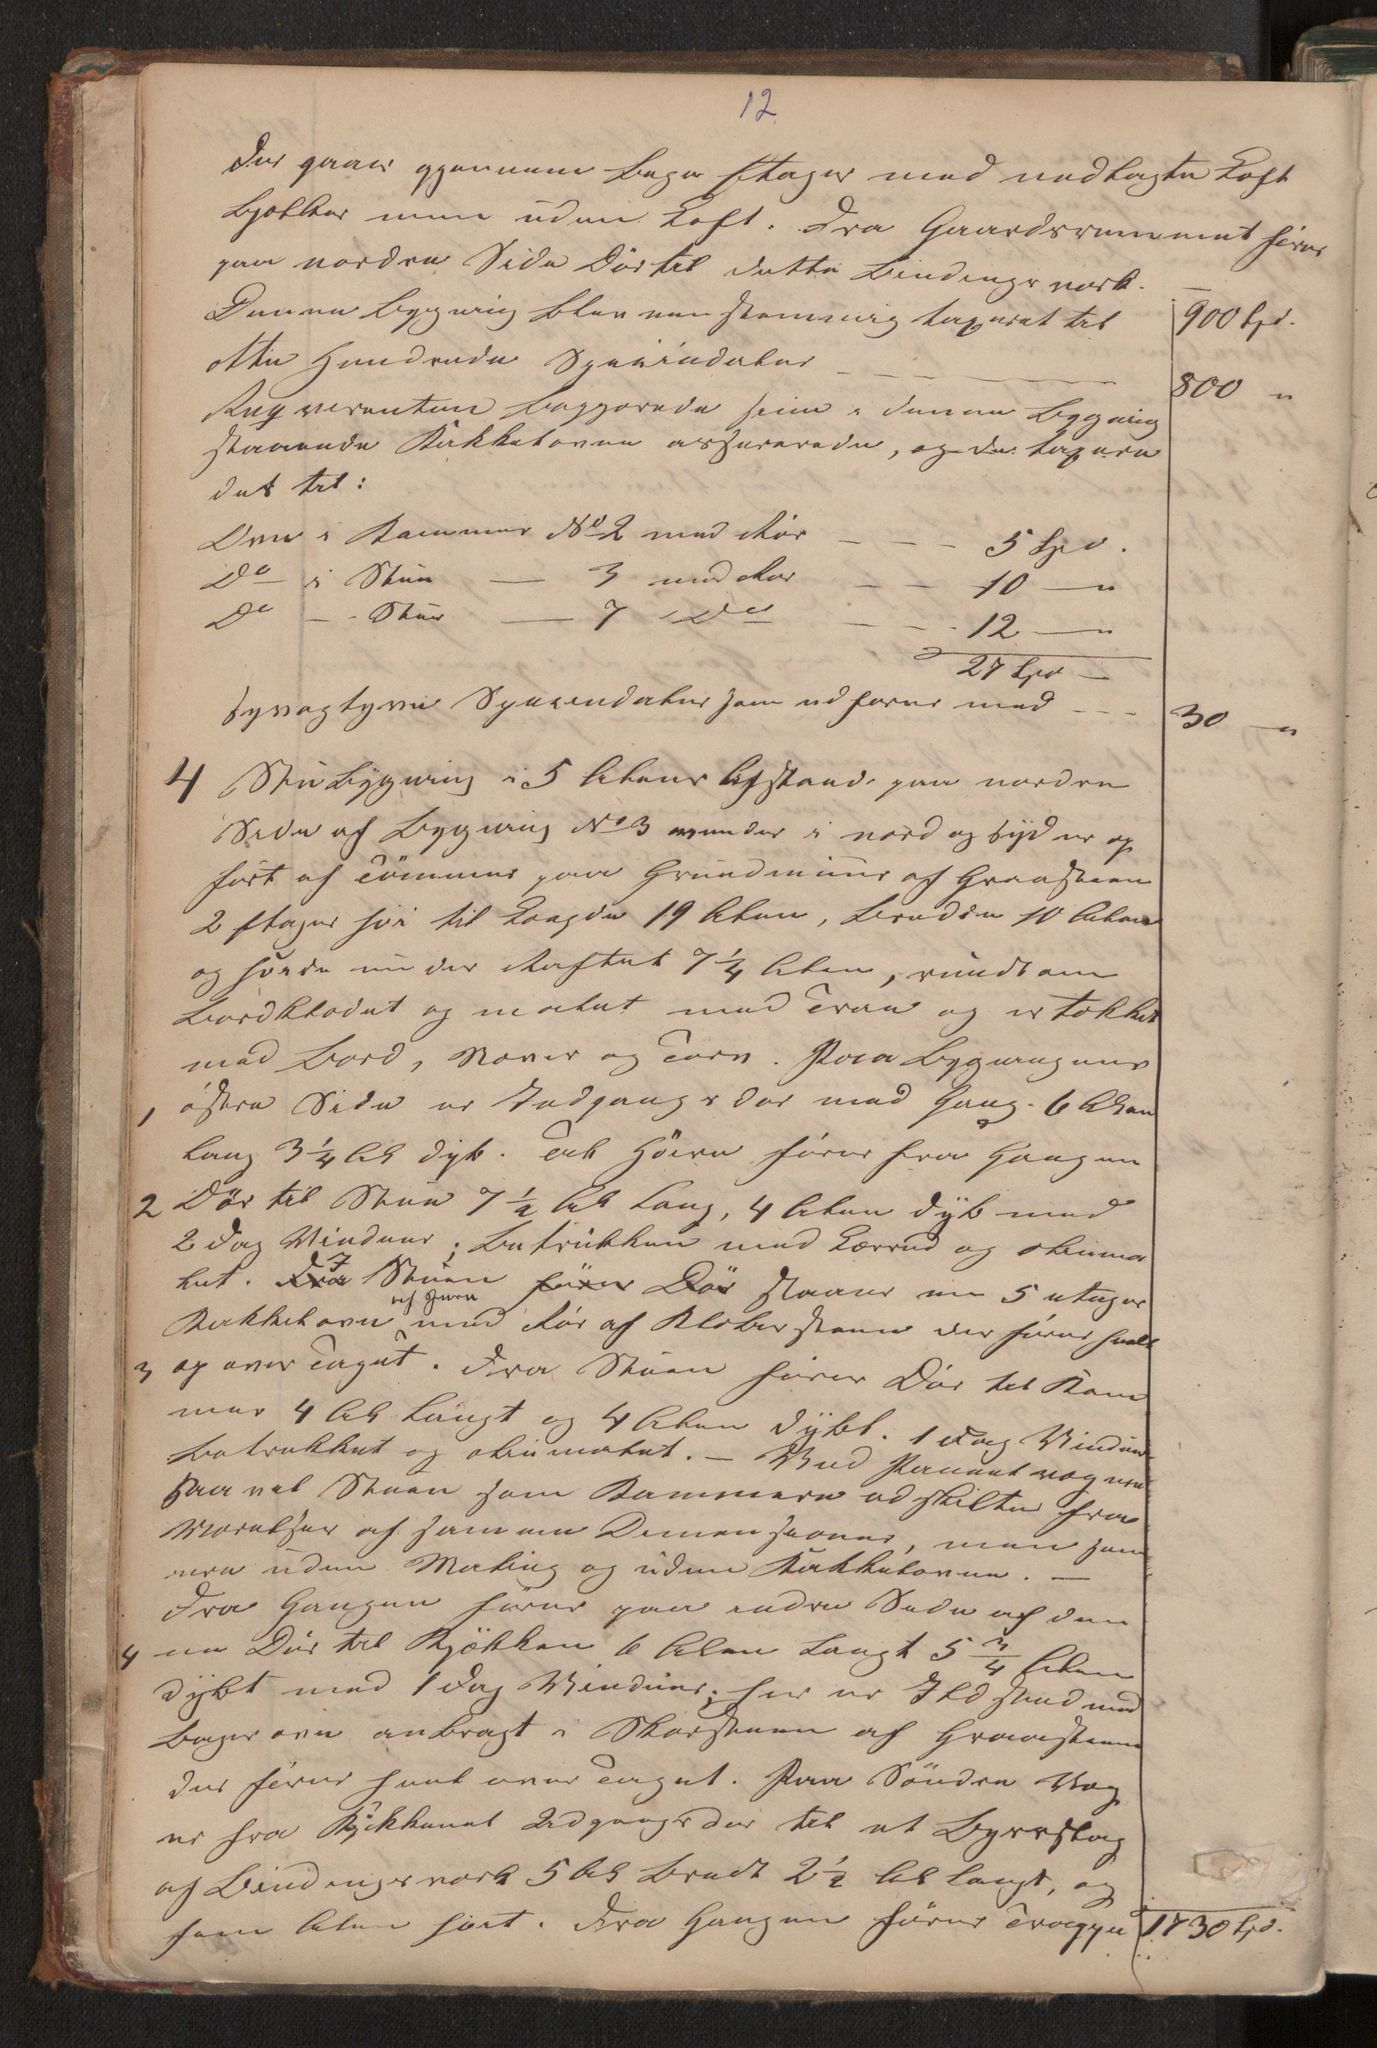 12
der gaaer gjennem begge Etager med nedlagte Loft
bjælker men uden Loft. Fra Gaardsrummet fører
paa nordre Side Dør til dette Bindingsværk.
900 Spd.
Denne Bygning blev eenstemmig taxeret til
otte Hundrede Speciedaler _ _
800 "
Reqvirenten begjærede sine i denne Bygning
staaende Kakkelovne assurerede, og de taxere
des til:
Ovn i Kammer No 2 med Rør _ _ _ 5 Spd.
Do i Stue — 3 med Rør _ _ 10 — "
Do — Stue — 7 Do _ _ _ 12 — "
27 Spd —
Syvogtyve Speciedaler som udføres med _ _ _
30 — "
4 Stuebygning i 5 Alens Afstand paa nordre
Side af Bygning No 3 vender i nord og Syd er op
ført af Tømmer paa Grundmuur af Graasteen
2 Etager høi til Længde 19 Alen, Bredde 10 Alen
og høide under Raftet 7 1/4 Alen, rundt om
bordklædet og malet med Tran og er tækket
med Bord, Næver og Torv. Paa Bygningens
1 østre Side er Indgangsdør med Gang 6 Alen
lang 3 1/4 Al dyb. Til Høire fører fra Gangen
2 Dør til Stue 7 1/2 Al lang, 4 Alen dyb med
2 Fag Vinduer; betrukken med Lærred og oliema
let. Fra I Stuen fører Dør staaer en 5 etages
Kakkelovn af Jern med Rør af Klebersteen der fører heelt
3 op over Taget. Fra Stuen fører Dør til Kam
mer 4 Al langt og 4 Alen dybt. 1 Fag Vinduer
betrukket og oliemalet. — Ved Paneelvæg ere
saavel Stuen som Kammeret adskilte fra
Værelser af samme Dimensioner, men som
ere uden Maling og uden Kakkelovne. —
Fra Gangen fører paa indre Side af den
4 ne Dør til Kjøkken 6 Alen langt 5 3/4 Alen
dybt med 1 Fag Vinduer; her er Ildsted med
Bagerovn anbragt i Skorsteen af Graasteen
der fører heelt over Taget. Paa Søndre Væg
er fra Kjøkkenet Udgangsdør til et Byrslag
af Bindingsværk 5 Al bredt 2 1/2 Al langt, og
fem Alen høit. Fra Gangen fører Trappe
1730 Spd.